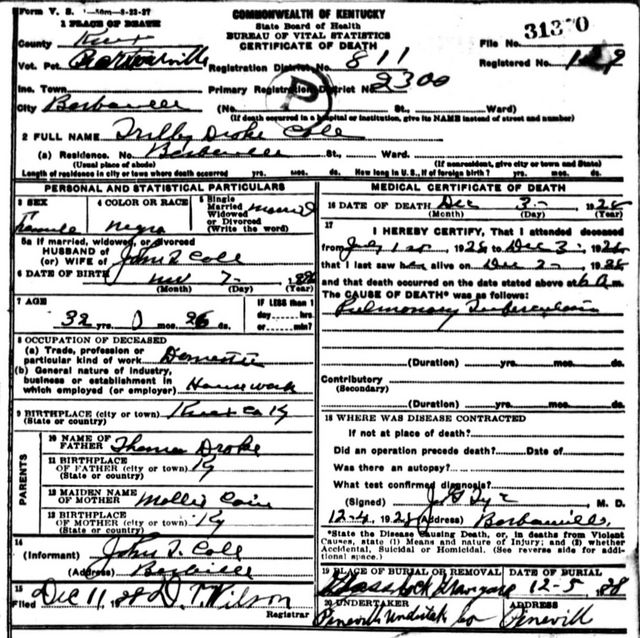 Form V. S. 1-50m-8-22-27
COMMONWEALTH OF KENTUCKY
State Board of Health
BUREAU OF VITAL STATISTICS
CERTIFICATE OF DEATH
1 PLACE OF DEATH
County Knox
File No. 31370
Vot. Pct.
Registration District No. 811
Registered No.
Inc. Town
Primary Registration District No. 2300
City Barbourville (No. St., Ward)
(If death occurred in a hospital or institution, give its NAME instead of street and number)
2 FULL NAME Trilby Droke Cole
(a) Residence. No. St., Ward.
(Usual place of abode) (If nonresident, give city or town and State)
Length of residence in city or town where death occurred yrs. mos. ds. How long in U. S., if of foreign birth? yrs. mos. ds.
PERSONAL AND STATISTICAL PARTICULARS
3 SEX 4 COLOR OR RACE 5 Single Married Widowed or Divorced (Write the word)
Female negro Married
5a If married, widowed, or divorced
HUSBAND OF
(or) WIFE OF John T Cole
6 DATE OF BIRTH Nov 7
(Month) (Day) (Year)
7 AGE IF LESS than 1
day----hrs.
32 yrs. 0 mos. 26 ds. or----min?
8 OCCUPATION OF DECEASED
(a) Trade, profession or
particular kind of work Domestic
(b) General nature of industry,
business or establishment in
which employed (or employer) Housework
9 BIRTHPLACE (city or town) Knox Co Ky
(State or country)
PARENTS
10 NAME OF
FATHER Thomas Droke
11 BIRTHPLACE
OF FATHER (city or town) Ky
(State or country)
12 MAIDEN NAME
OF MOTHER Mollie
13 BIRTHPLACE
OF MOTHER (city or town) Ky
(State or country)
14
(Informant) John T. Cole
(Address)
15
Filed Dec 11, 1928 D. T. Wilson
Registrar
MEDICAL CERTIFICATE OF DEATH
16 DATE OF DEATH Dec 3 - 1928
(Month) (Day) (Year)
17
I HEREBY CERTIFY, That I attended deceased
from July 1st, 1928, to Dec 3, 1928
that I last saw her alive on Dec 2, 1928
and that death occurred on the date stated above at 6 a m.
The CAUSE OF DEATH* was as follows:
Pulmonary Tuberculosis
(Duration) yrs. mos. ds.
Contributory
(Secondary)
(Duration) yrs. mos. ds.
18 WHERE WAS DISEASE CONTRACTED
If not at place of death?
Did an operation precede death? Date of
Was there an autopsy?
What test confirmed diagnosis?
(Signed) M. D.
12-4, 1928 (Address) Barbourville,
*State the Disease Causing Death, or, in deaths from Violent
Causes, state (1) Means and nature of Injury; and (2) whether
Accidental, Suicidal or Homicidal. (See reverse side for addi-
tional space.)
19 PLACE OF BURIAL OR REMOVAL DATE OF BURIAL
Graveyard 12-5, 1928
20 UNDERTAKER ADDRESS
Pineville Undertak Co Pinevill